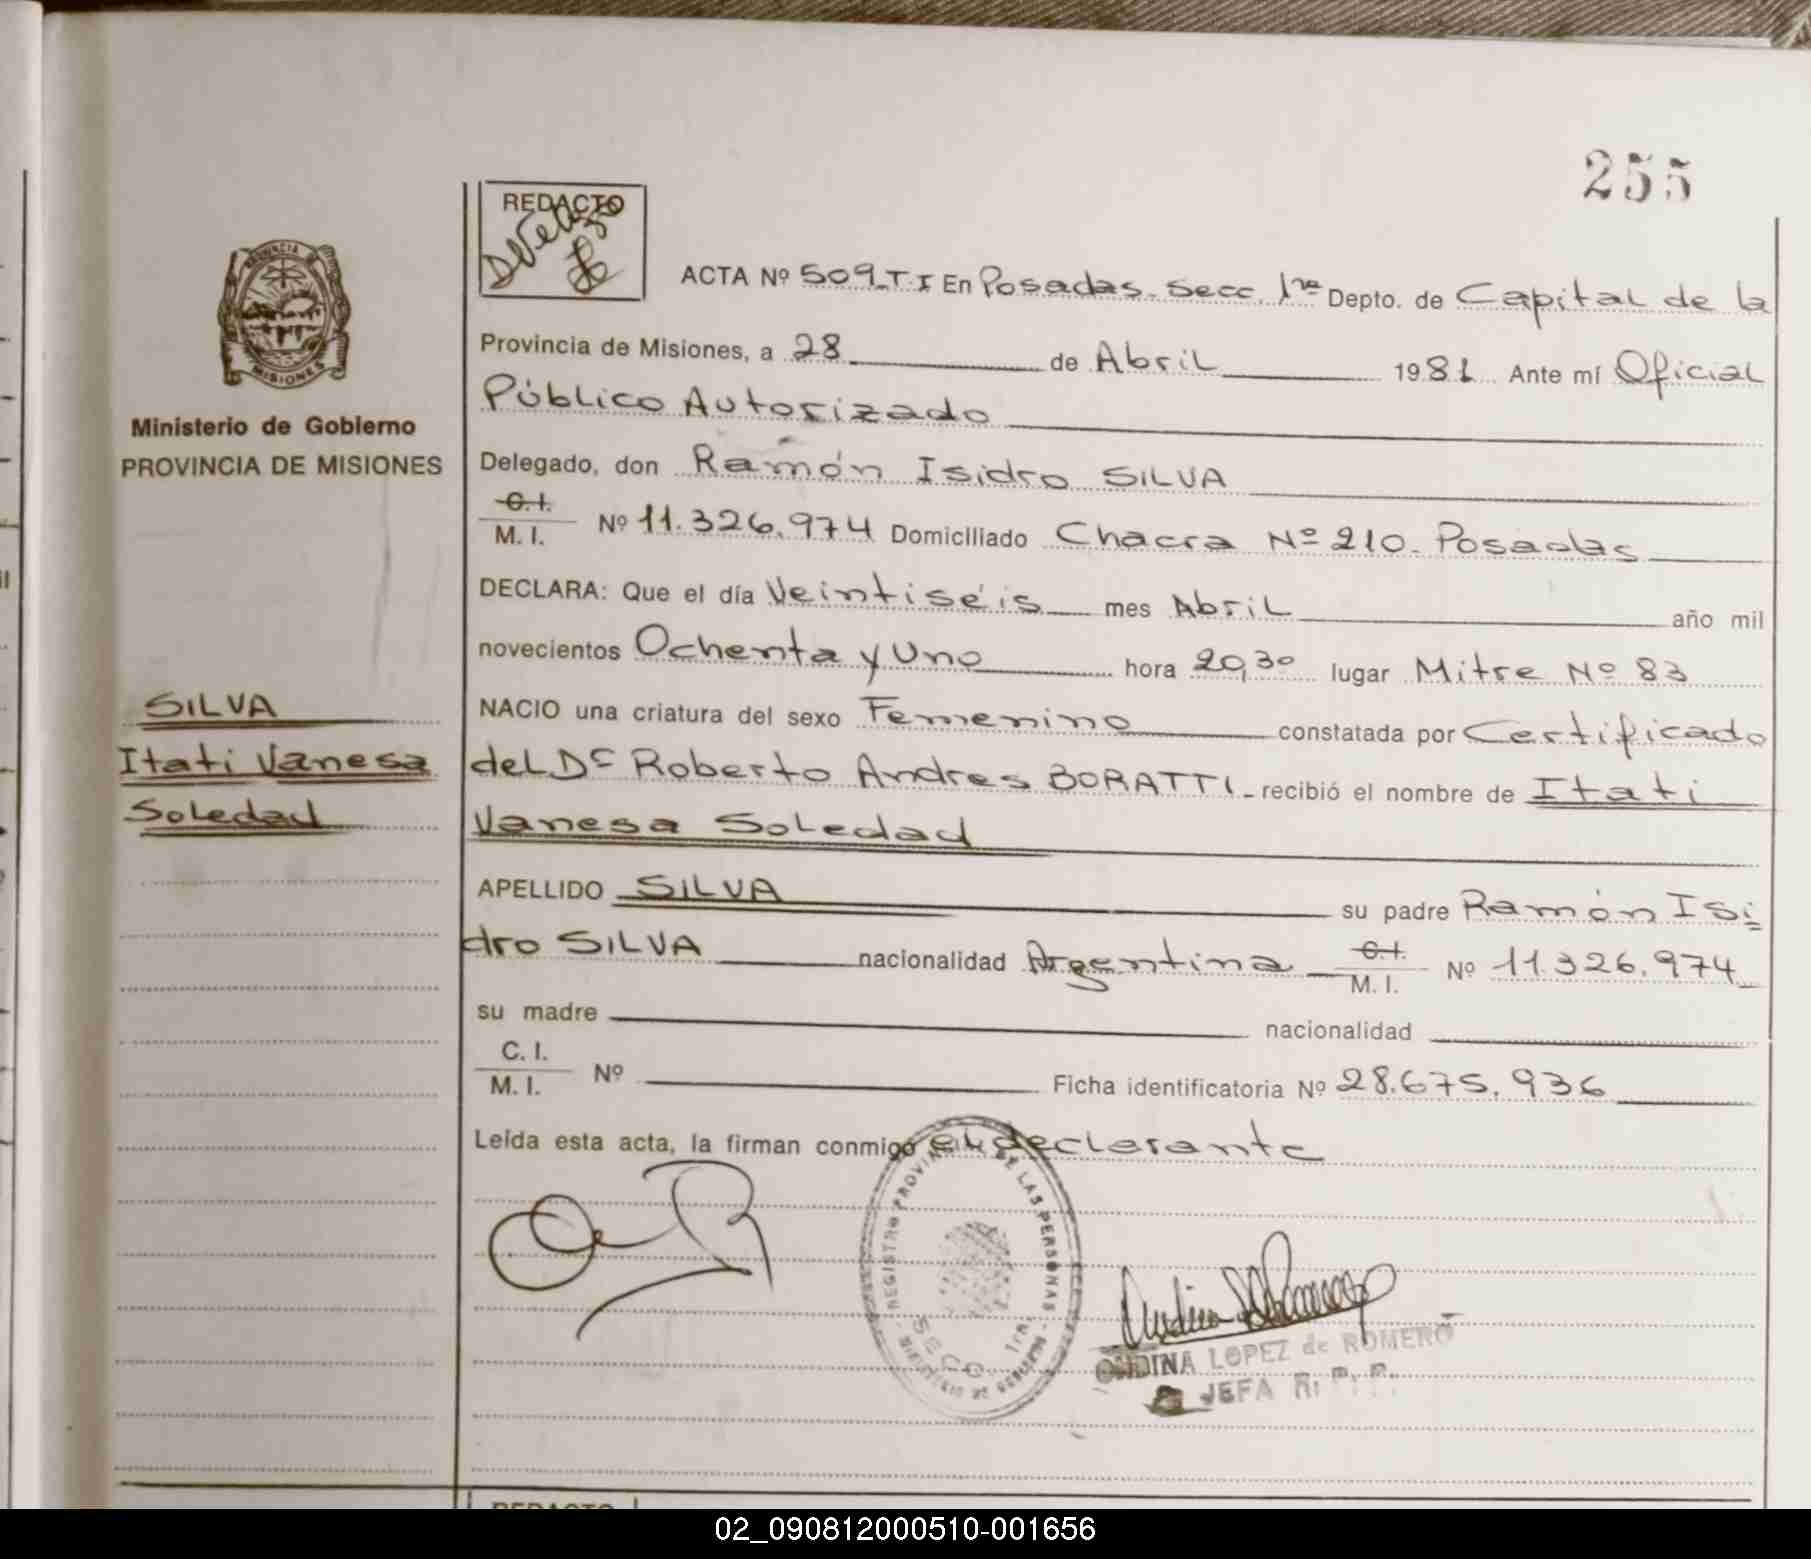 255
REDACTO
PROVINCIA DE
MISIONES
ACTA Nº 509-T-I En Posadas. Secc 1ra Depto. de Capital de la
Provincia de Misiones, a 28 de Abril 1981 Ante mí Oficial
Público Autorizado
Ministerio de Gobierno
PROVINCIA DE MISIONES
Delegado, don Ramón Isidro SILVA
C. I.
M. I. Nº 11.326.974 Domiciliado Chacra Nº 210. Posadas
DECLARA: Que el día Veintiséis mes Abril año mil
novecientos Ochenta y Uno hora 20,30 lugar Mitre Nº 83
SILVA
Itati Vanesa
Soledad
NACIO una criatura del sexo Femenino constatada por Certificado
del Dr Roberto Andres BORATTI - recibió el nombre de Itati
Vanesa Soledad
APELLIDO SILVA su padre Ramón Isi
dro SILVA nacionalidad Argentina C. I.
M. I. Nº 11.326.974
su madre nacionalidad
C. I.
M. I. Nº Ficha identificatoria Nº 28.675.936
Leída esta acta, la firman conmigo el declarante
REGISTRO PROVINCIAL DE LAS PERSONAS
SECC. 1ra.
MINISTERIO DE GOBIERNO
ONDINA LOPEZ de ROMERO
JEFA R. P. P.
REDACTO
02_090812000510-001656